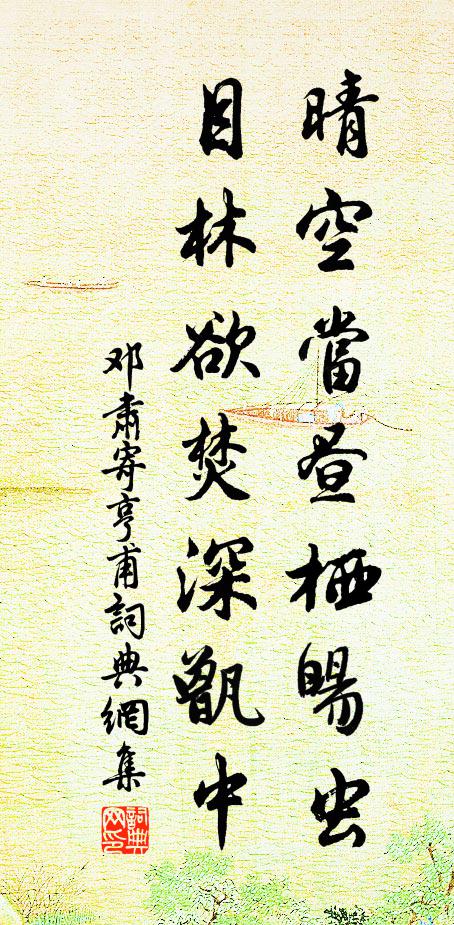 晴空當昼栖暘虫
目林欲焚深甑中
邓肅寄亨甫詞典網集
詞典網印